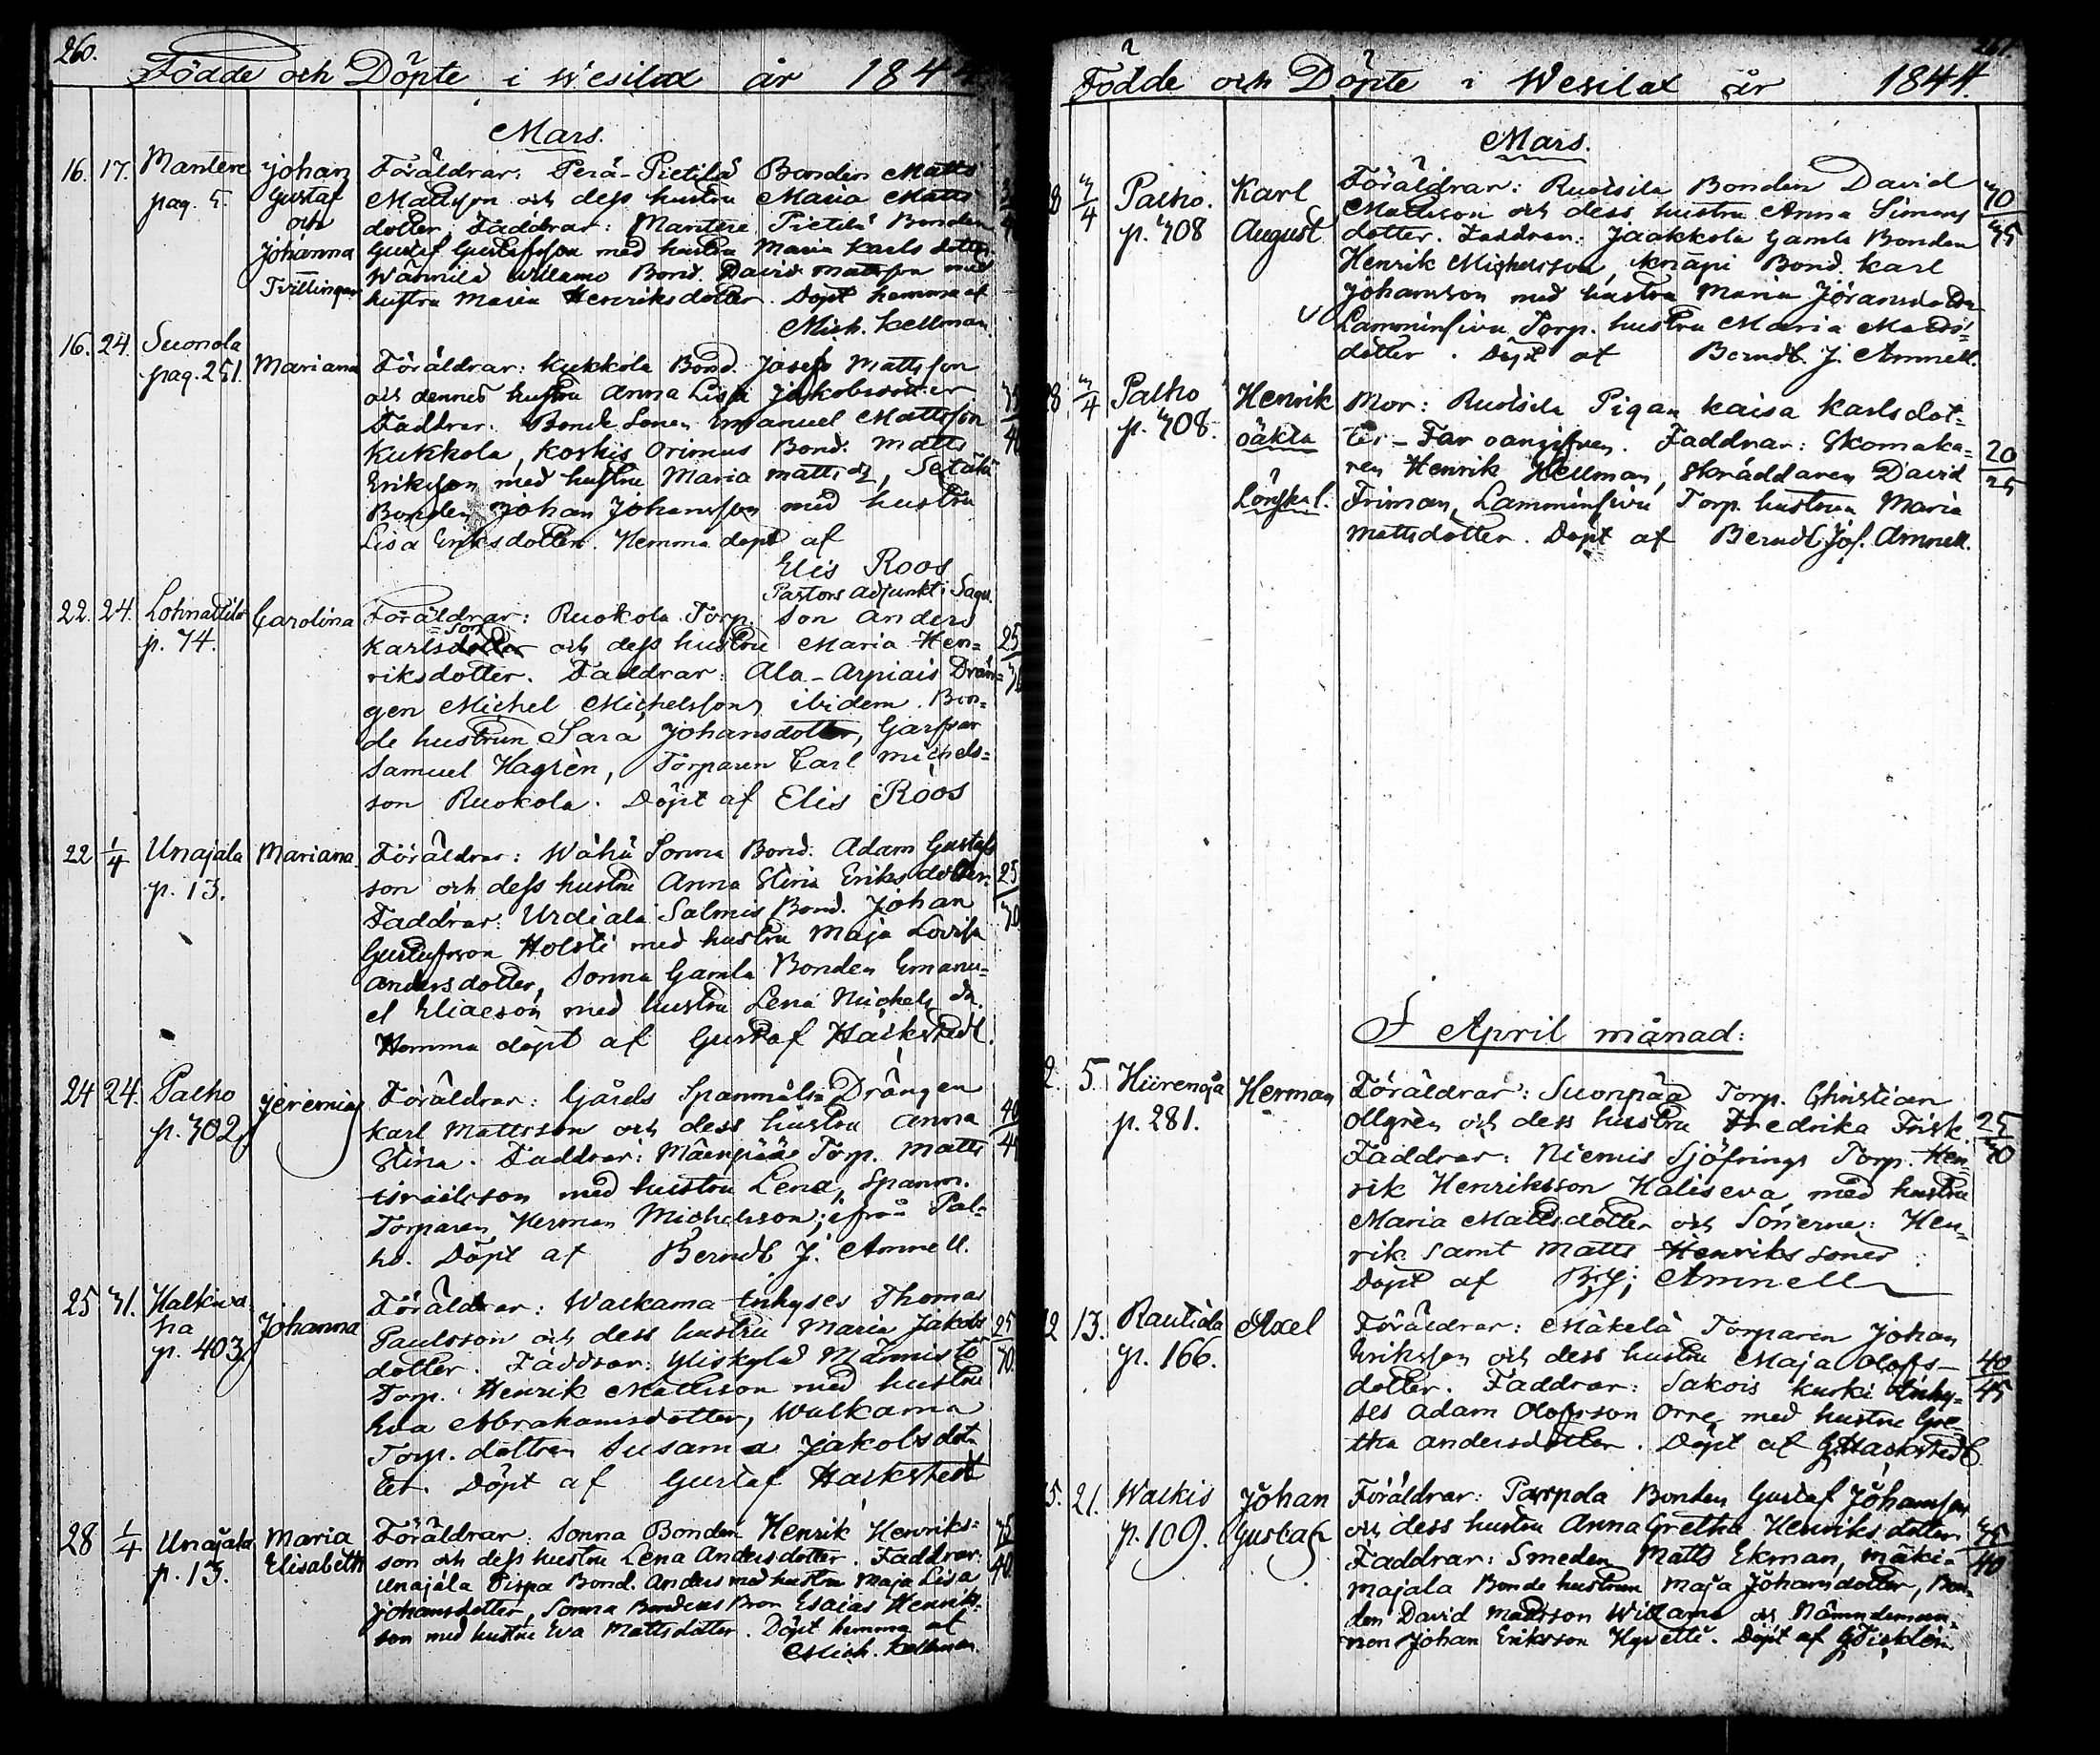 260.
Födde och Döpte i Wesilax år 184
Mars.
16. 17. Mantere pag. 5. Johan Gustaf och Johanna Tvillingar
Föräldrar: Perä-Pietilä Bonden Matts
Mattsson och dess hustru Maria Matts
dotter. Faddrar: Mantere Pietilä Bonden
Gustaf Gustafsson med hustru Maria Karls dotter
Wännilä Willamo Bond. David Mattsson med
hustru Maria Henriksdotter. Döpt hemma af
Mich. Kellman.
16. 24. Suonola pag. 251. Mariana
Föräldrar: Kukkola Bond. Josef Mattsson
och dennes hustru Anna Lisa Jakobsdotter
Faddrar: Bonde Sonen Emanuel Mattsson
Kukkola, Koskis Orimus Bond. Matts
Eriksson med hustru Maria Matts dr, Setälä
Bonden Johan Johansson med hustru
Lisa Eriksdotter. Hemma döpt af
Elis Roos
Pastors Adjunkt i Sagu.
22. 24. Lohnattila p. 74. Carolina
Föräldrar: Ruokola Torp. son Anders
Karlsson och dess hustru Maria Hen=
riksdotter. Faddrar: Ala-Arpiais Drän=
gen Michel Michelsson, ibidem Bon=
de hustrun Sara Johansdotter, Garfvar
Samuel Hagrèn, Torparen Carl Michels=
son Ruokola. Döpt af Elis Roos
25
22 1/4 Unajala p. 13. Mariana.
Föräldrar: Wähä Sonna Bond. Adam Gustafs
son och dess hustru Anna Stina Eriksdotter.
Faddrar: Urdiala Salmis Bond. Johan
Gustafsson Holsti med hustru Maja Lovisa
Andersdotter, Sonna Gamla Bonden Emanu=
el Eliaeson med hustru Lena Michels dr.
Hemma döpt af Gustaf Hackstedt.
25
30
24 24. Palho p. 302. Jeremias
Föräldrar: Gårds Spanmåls Drängen
Karl Mattsson och dess hustru Anna
Stina. Faddrar: Mäenpää Torp. Matts
Israelsson med hustru Lena, Spanm.
Torparen Herman Michelsson; ifrån Pal=
ho. Döpt af Berndt J. Amnell.
40
25 31. Halkiva ha p. 403. Johanna
Föräldrar: Walkama Inhyses Thomas
Paulsson och dess hustru Maria Jakobs
dotter. Faddrar: Yliskylä Männistö
Torp. Henrik Mattsson med hustru
Eva Abrahamsdotter, Walkama
Torp. dottren Susanna Jakobsdot
ter. Döpt af Gustaf Hackstedt
25
30.
28 1/4 Unajala p. 13. Maria Elisabeth
Föräldrar: Sonna Bonden Henrik Henriks=
son och dess hustru Lena Andersdotter. Faddrar:
Unajala Pispa Bond. Anders med hustru Maja Lisa
Johansdotter, Sonna Bondens Bror Esaias Henriks=
son med hustru Eva Mattsdotter. Döpt hemma af
Mich. Kellman.
35
40
261
Födde och Döpte i Wesilax år 1844.
Mars.
28 3/4 Palho. p. 308 Karl August
Föräldrar: Ruotsila Bonden David
Mattsson och dess hustru Anna Simons
dotter. Faddrar: Jaakkola Gamla Bonden
Henrik Michelsson, Knäpi Bond. Karl
Johansson med hustru Maria Göransdotter
Lamminsivu Torp. hustru Maria Matts=
dotter. Döpt af Berndt J. Amnell.
30
35
28 3/4 Palho p. 308. Henrik oäkta Lönskal.
Mor: Ruotsila Pigan Kaisa Karlsdot=
ter - Far oangifven. Faddrar: Skomaka=
ren Henrik Hellman, Skräddaren David
Friman, Lamminsivu Torp. hustrun Maria
Mattsdotter. Döpt af Berndt Jos. Amnell.
20
25
I April månad:
2. 5. Hiirenoja p. 281. Herman
Föräldrar: Suonpää Torp. Christian
Ollgrèn och dess hustru Fredrika Frisk.
Faddrar: Niemis Sjöfrings Torp. Hen=
rik Henriksson Haliseva med hustru
Maria Mattsdotter och Sönerne: Hen=
rik samt Matts Henriks söner
Döpt af BJ; Amnell
25
30
12 13. Rautiala p. 166. Axel
Föräldrar: Mäkelä Torparen Johan
Eriksson och dess hustru Maja Olofs-
dotter. Faddrar: Sakois Kurki Inhy=
ses Adam Olofsson Orre med hustru Gre
tha Andersdotter. Döpt af G Hackstedt
40
45
15. 21. Walkis p. 109. Johan Gustaf
Föräldrar: Parpola Bonden Gustaf Johansson
och dess hustru Anna Gretha Henriksdotter.
Faddrar: Smeden Matts Ekman, Mäki=
majala Bonde hustrun Maja Johansdotter, Bon=
den David Mattsson Willamo och Nämndeman=
nen Johan Eriksson Hyvetti. Döpt af G Ticklén.
35
40